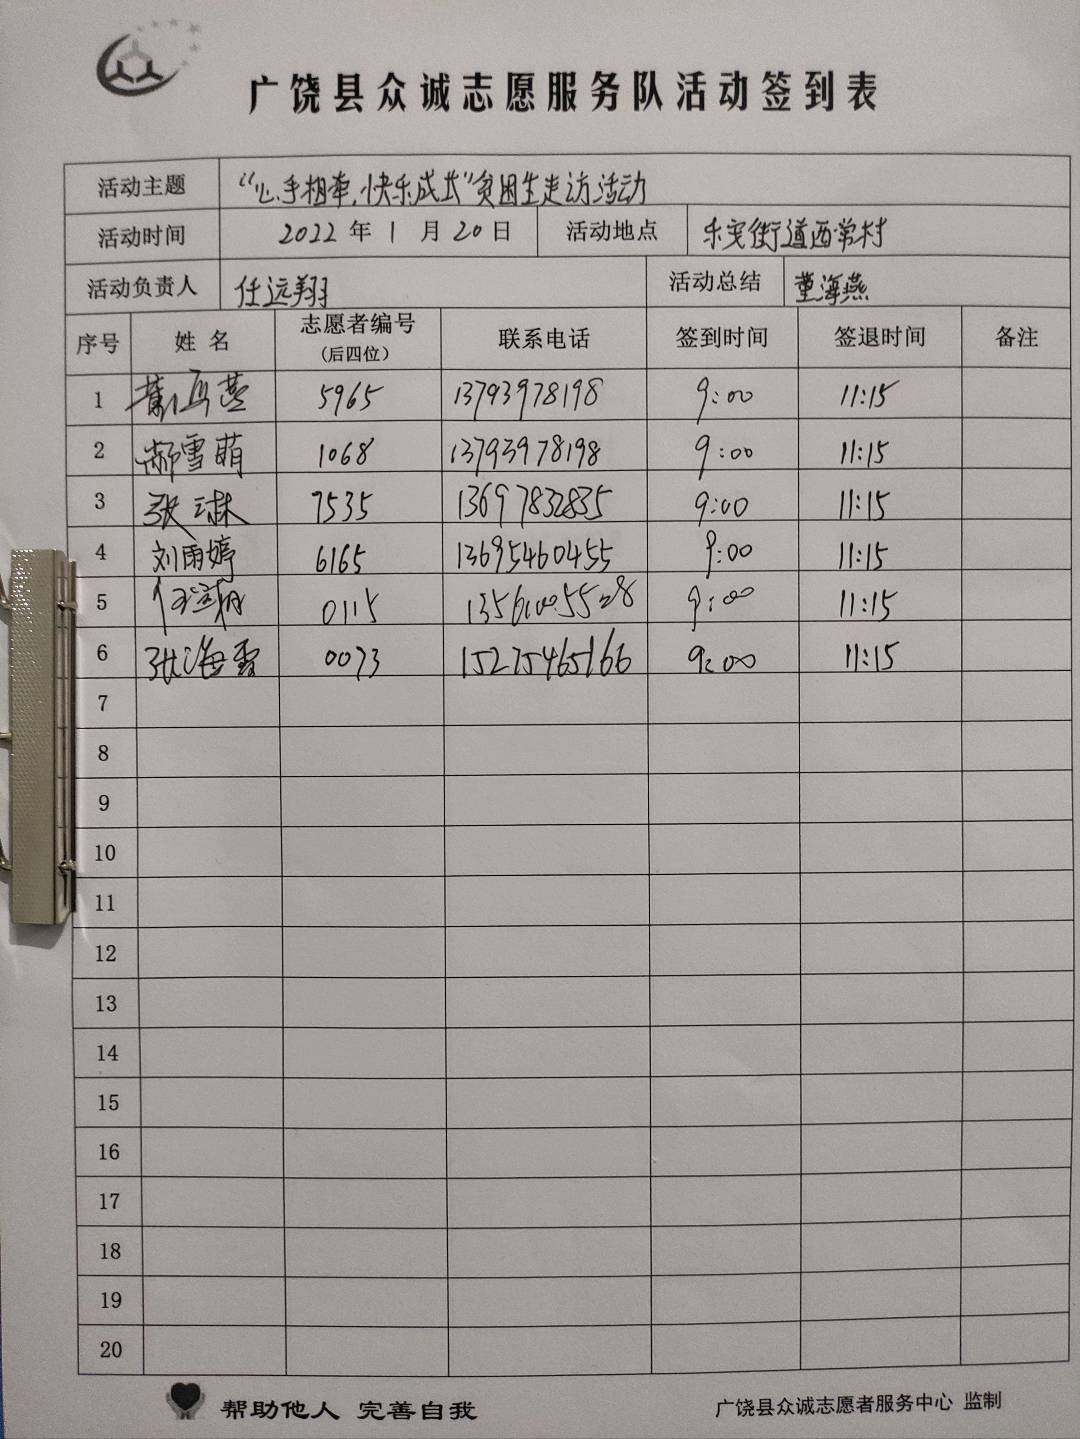 广饶县众诚志愿服务队活动签到表
活动主题 “心手相牵,快乐成长”贫困生走访活动
活动时间 2022 年 1 月 20 日 活动地点 乐安街道西常村
活动负责人 任远翔 活动总结 董海燕
序号 姓 名 志愿者编号 (后四位) 联系电话 签到时间 签退时间 备注
1 5965 13793978198 9:00 11:15
2 郝雪萌 1068 13793978198 9:00 11:15
3 张琳 7535 13697832835 9:00 11:15
4 刘雨婷 6165 13695460455 9:00 11:15
5 任远翔 0115 9:00 11:15
6 张海霞 0073 15275465166 9:00 11:15
7
8
9
10
11
12
13
14
15
16
17
18
19
20
帮助他人 完善自我
广饶县众诚志愿者服务中心 监制